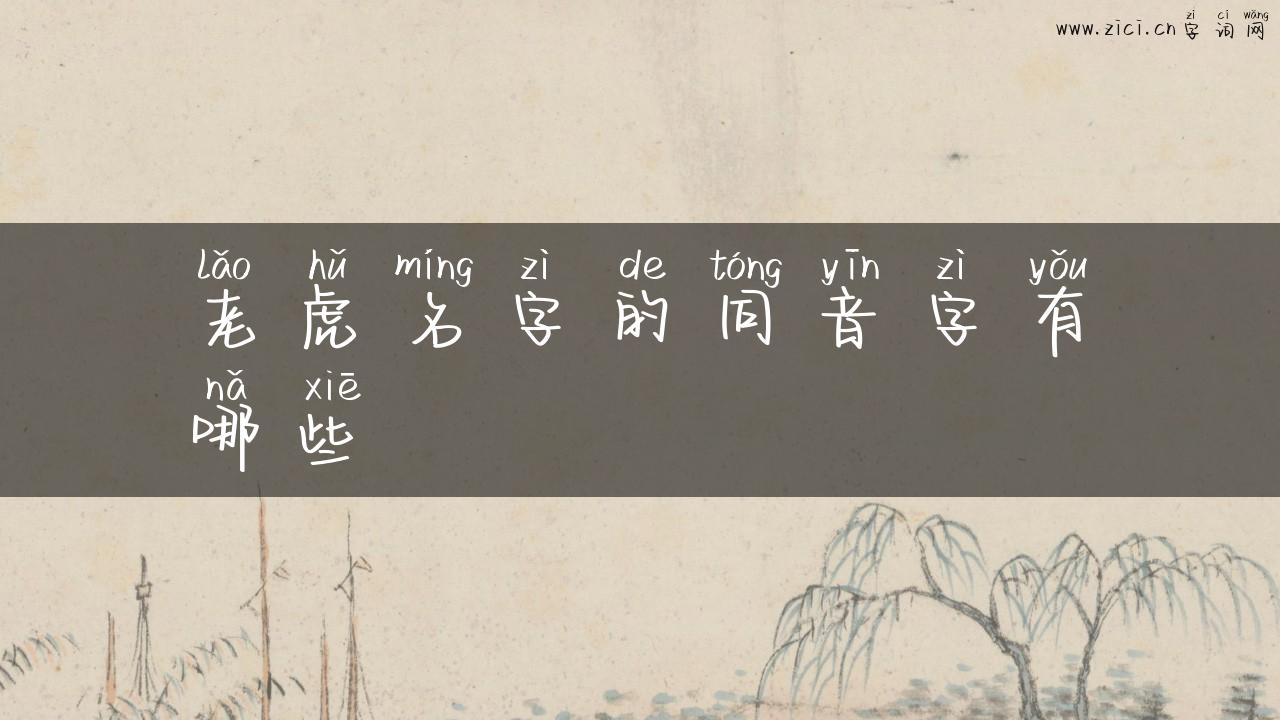 zì cí wǎng
www.zici.cn 字词网
lǎo hǔ míng zì de tóng yīn zì yǒu
老虎名字的同音字有
nǎ xiē
哪些